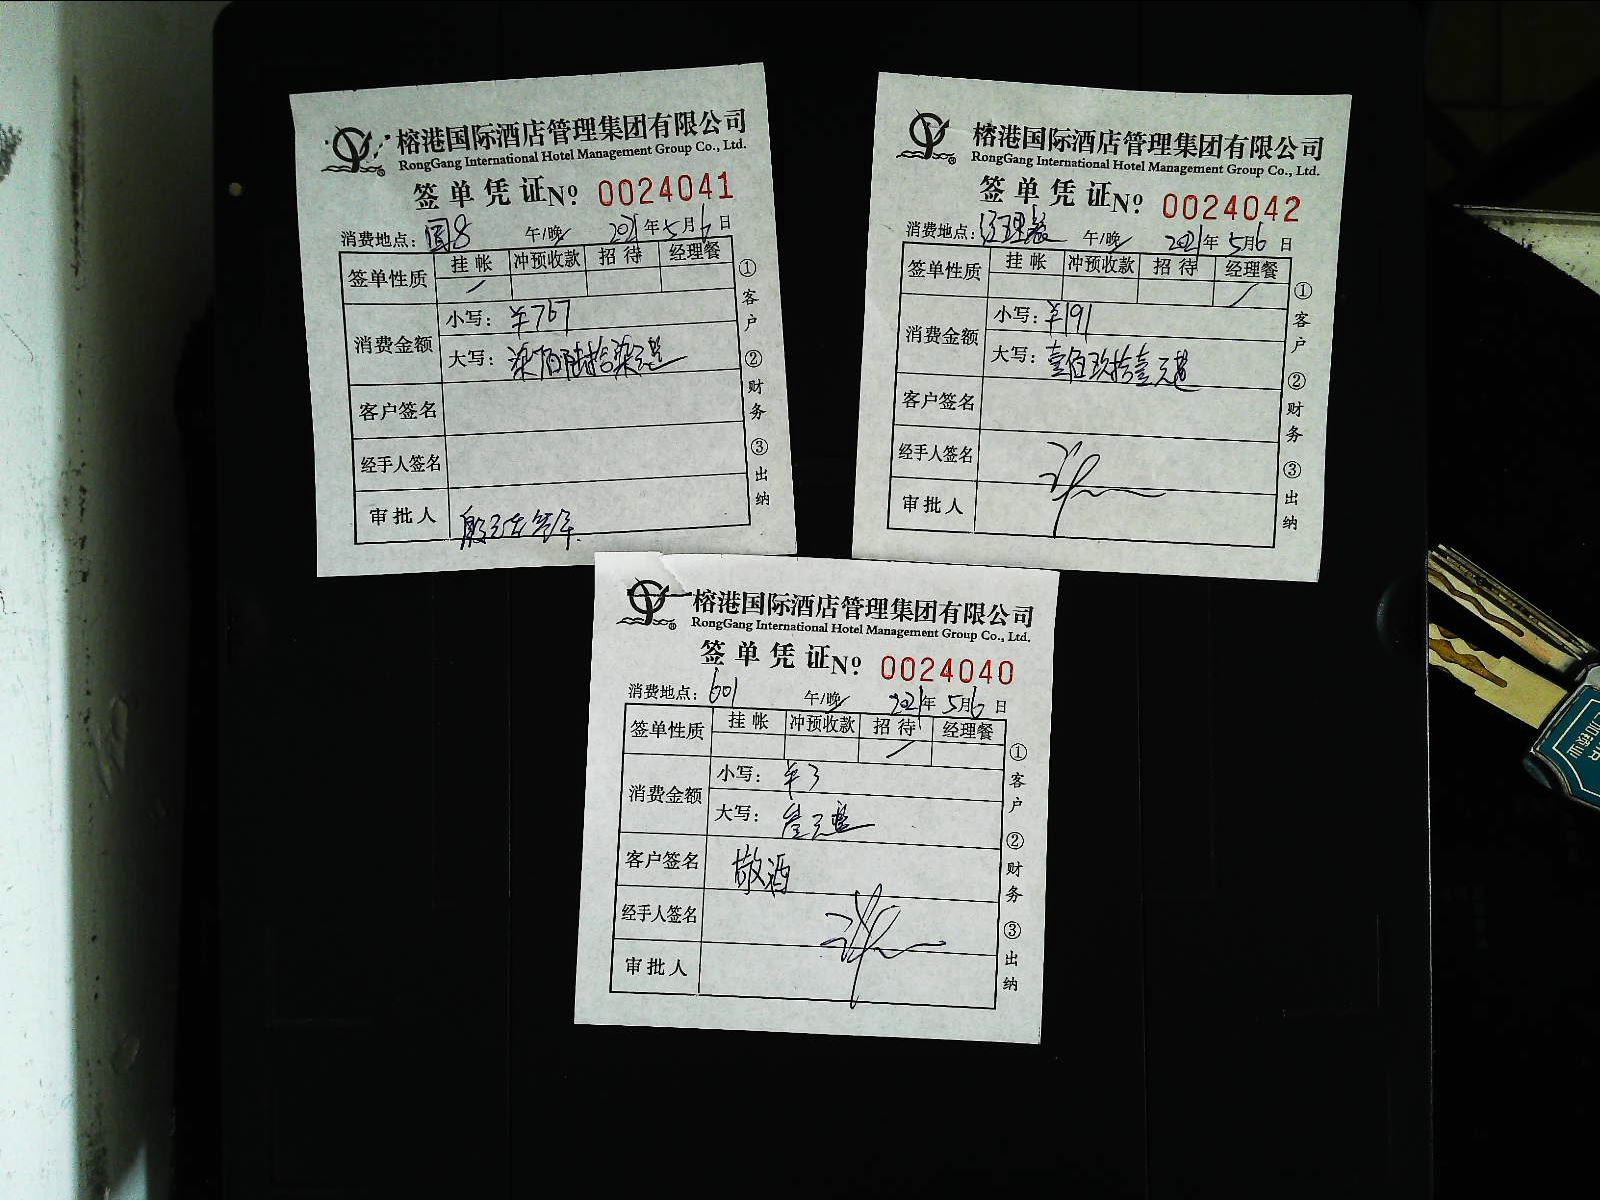 榕港国际酒店管理集团有限公司
RongGang International Hotel Management Group Co., Ltd.
签单凭证 No. 0024041
消费地点: 国8 午/晚 2021年5月6日
签单性质 挂帐 冲预收款 招待 经理餐
消费金额
小写: ¥767
大写: 柒佰陆拾柒元整
客户签名
经手人签名
审批人
①客户 ②财务 ③出纳
榕港国际酒店管理集团有限公司
RongGang International Hotel Management Group Co., Ltd.
签单凭证 No. 0024042
消费地点: 经理餐 午/晚 2021年5月6日
签单性质 挂帐 冲预收款 招待 经理餐
消费金额
小写: ¥191
大写: 壹佰玖拾壹元整
客户签名
经手人签名
审批人
①客户 ②财务 ③出纳
榕港国际酒店管理集团有限公司
RongGang International Hotel Management Group Co., Ltd.
签单凭证 No. 0024040
消费地点: 601 午/晚 2021年5月6日
签单性质 挂帐 冲预收款 招待 经理餐
消费金额
小写: ¥3
大写: 叁元整
客户签名 敬酒
经手人签名
审批人
①客户 ②财务 ③出纳